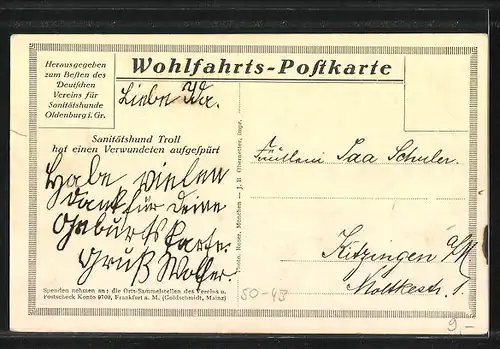 Herausgegeben
zum Besten des
Deutschen
Vereins für
Sanitätshunde
Oldenburg i. Gr.
Wohlfahrts-Postkarte
Liebe Ida.
Sanitätshund Troll
hat einen Verwundeten aufgespürt
Habe vielen
Dank für deine
Geburtskarte.
Gruß
Spenden nehmen an: die Orts-Sammelstellen des Vereins u.
Postscheck Konto 9700, Frankfurt a. M. (Goldschmidt, Mainz)
Photo. Reiser, München — J. B. Obernetter, impr.
Fräulein Ida Schuler.
Kitzingen a/M
Moltkestr. 1.
50-43
9,-